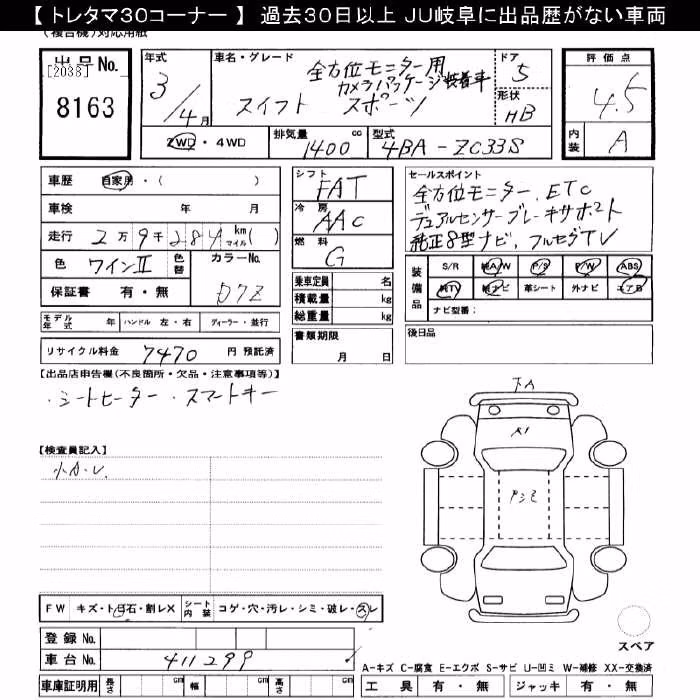 【トレタマ30コーナー】 過去30日以上 JU岐阜に出品歴がない車両
(複合機)対応用紙
出品No.
[2038]
8163
年式
3/4月
車名・グレード
全方位モニター用
カメラパッケージ装着車
スイフト スポーツ
ドア
5
形状
HB
評価点
4.5
内装
A
2WD・4WD
排気量
1400 cc
型式
4BA-ZC33S
車歴 自家用・( )
車検 年 月
走行 2万9千284 km マイル( )
色 ワインⅡ 色替
カラーNo.
D7Z
保証書 有・無
シフト
FAT
冷房
AAC
燃料
G
乗車定員 名
積載量 kg
総重量 kg
セールスポイント
全方位モニター、ETC
デュアルセンサーブレーキサポート
純正8型ナビ、フルセグTV
装備品
S/R 純A/W P/S P/W ABS
純TV 純ナビ 革シート 外ナビ エアB
ナビ型番:
モデル年式 年 ハンドル 左・右 ディーラー・並行
書類期限
月 日
後日品
リサイクル料金 7470 円 預託済
【出品店申告欄(不良箇所・欠品・注意事項等)】
・シートヒーター ・スマートキー
【検査員記入】
小A.U.
F W キズ・ト日石・割レX シート内装 コゲ・穴・汚レ・シミ・破レ・スレ
登録No.
車台No. 411299
車庫証明用 長さ cm 幅 cm 高さ cm
A1
スペア
A-キズ C-腐食 E-エクボ S-サビ U-凹ミ W-補修 XX-交換済
工具 有・無 ジャッキ 有・無